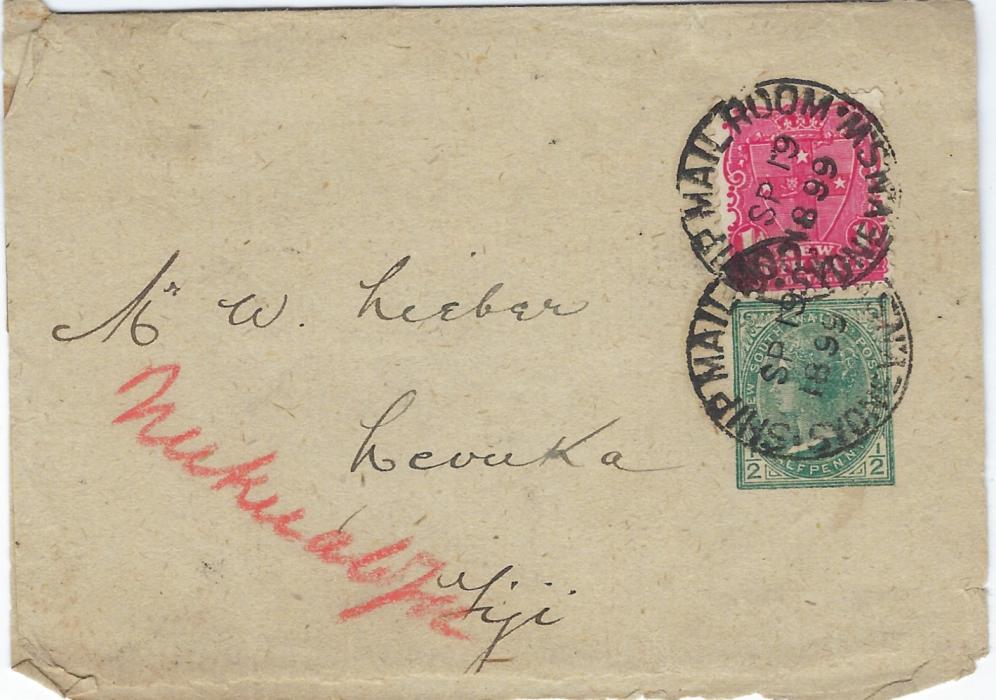 SHIP MAIL ROOM · N.S.W.
SP 19
1899
SYDNEY
NEW
SHIP MAIL ROOM · SYDNEY · N.S.W.
SP 19
1899
NEW SOUTH WALES POSTAGE
HALFPENNY
1/2 1/2
Mr W. Lieber
Levuka
Fiji
Nukualofa